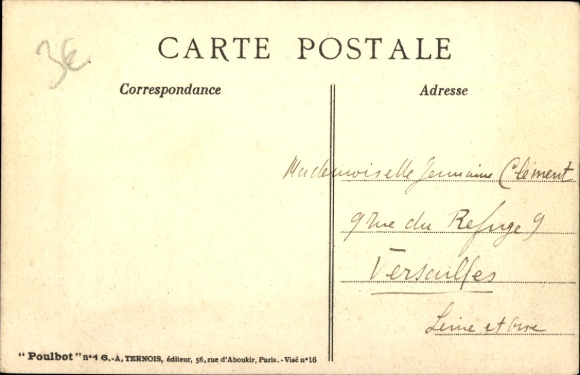 3€
CARTE POSTALE
Correspondance
Adresse
Mademoiselle Germaine Clément
9 rue du Refuge 9
Versailles
Seine et Oise
"Poulbot" n° 16.-A, TERNOIS, éditeur, 56, rue d'Aboukir, Paris. - Visé n° 16